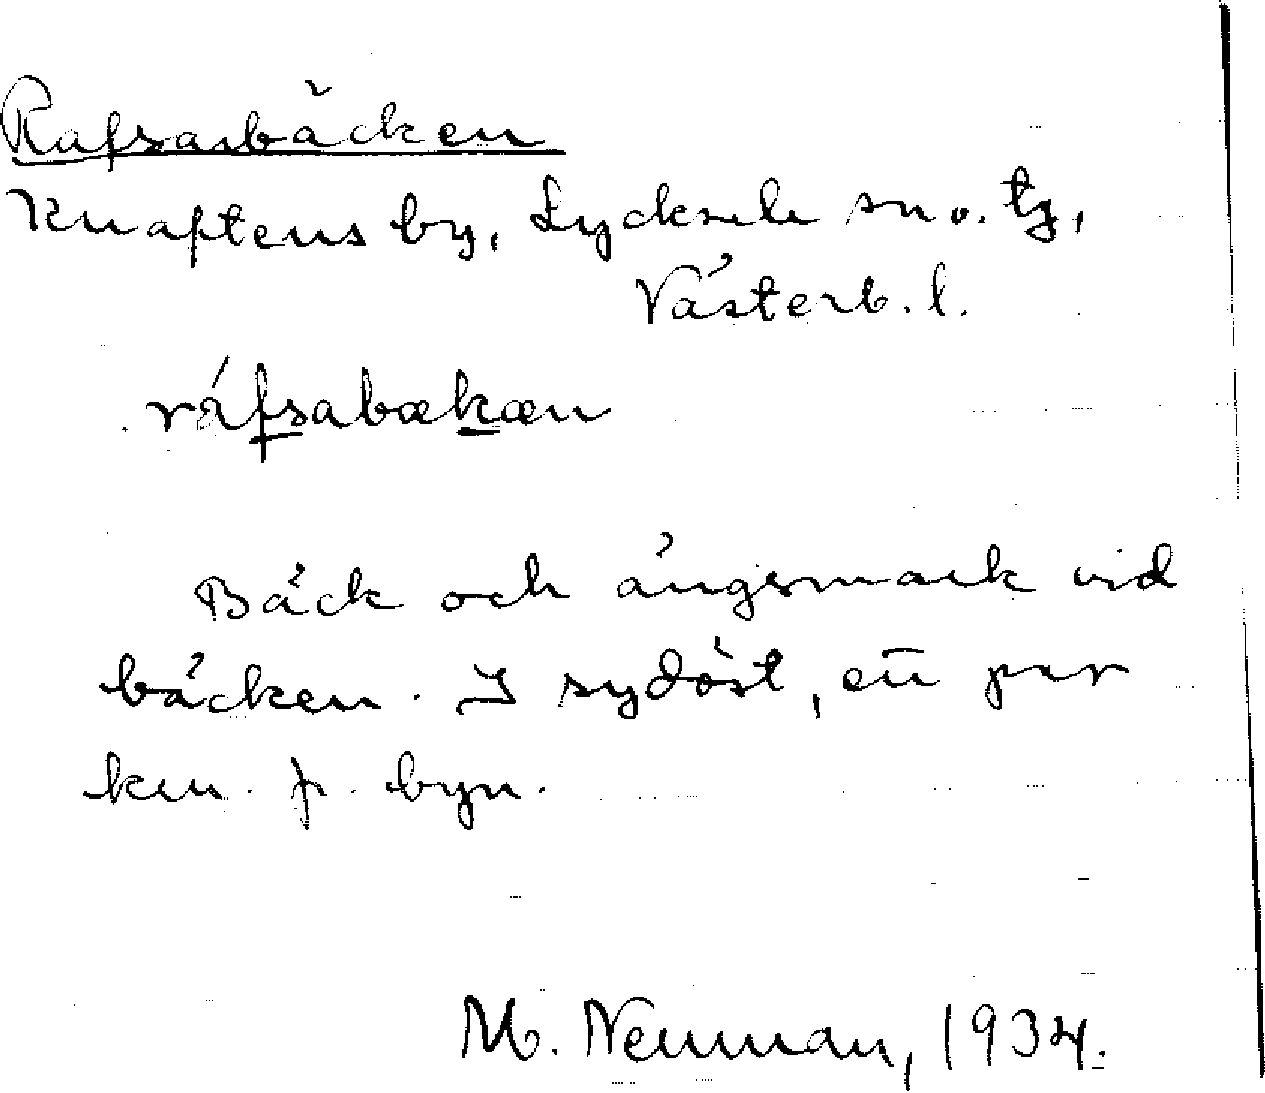 Rafsarbäcken
Knaftens by, Lycksele sn o. tg,
Västerb. l.
ráfsabækæn
Bäck och ängsmark vid
bäcken. I sydöst, ett par
km. fr. byn.
M. Neuman, 1934.